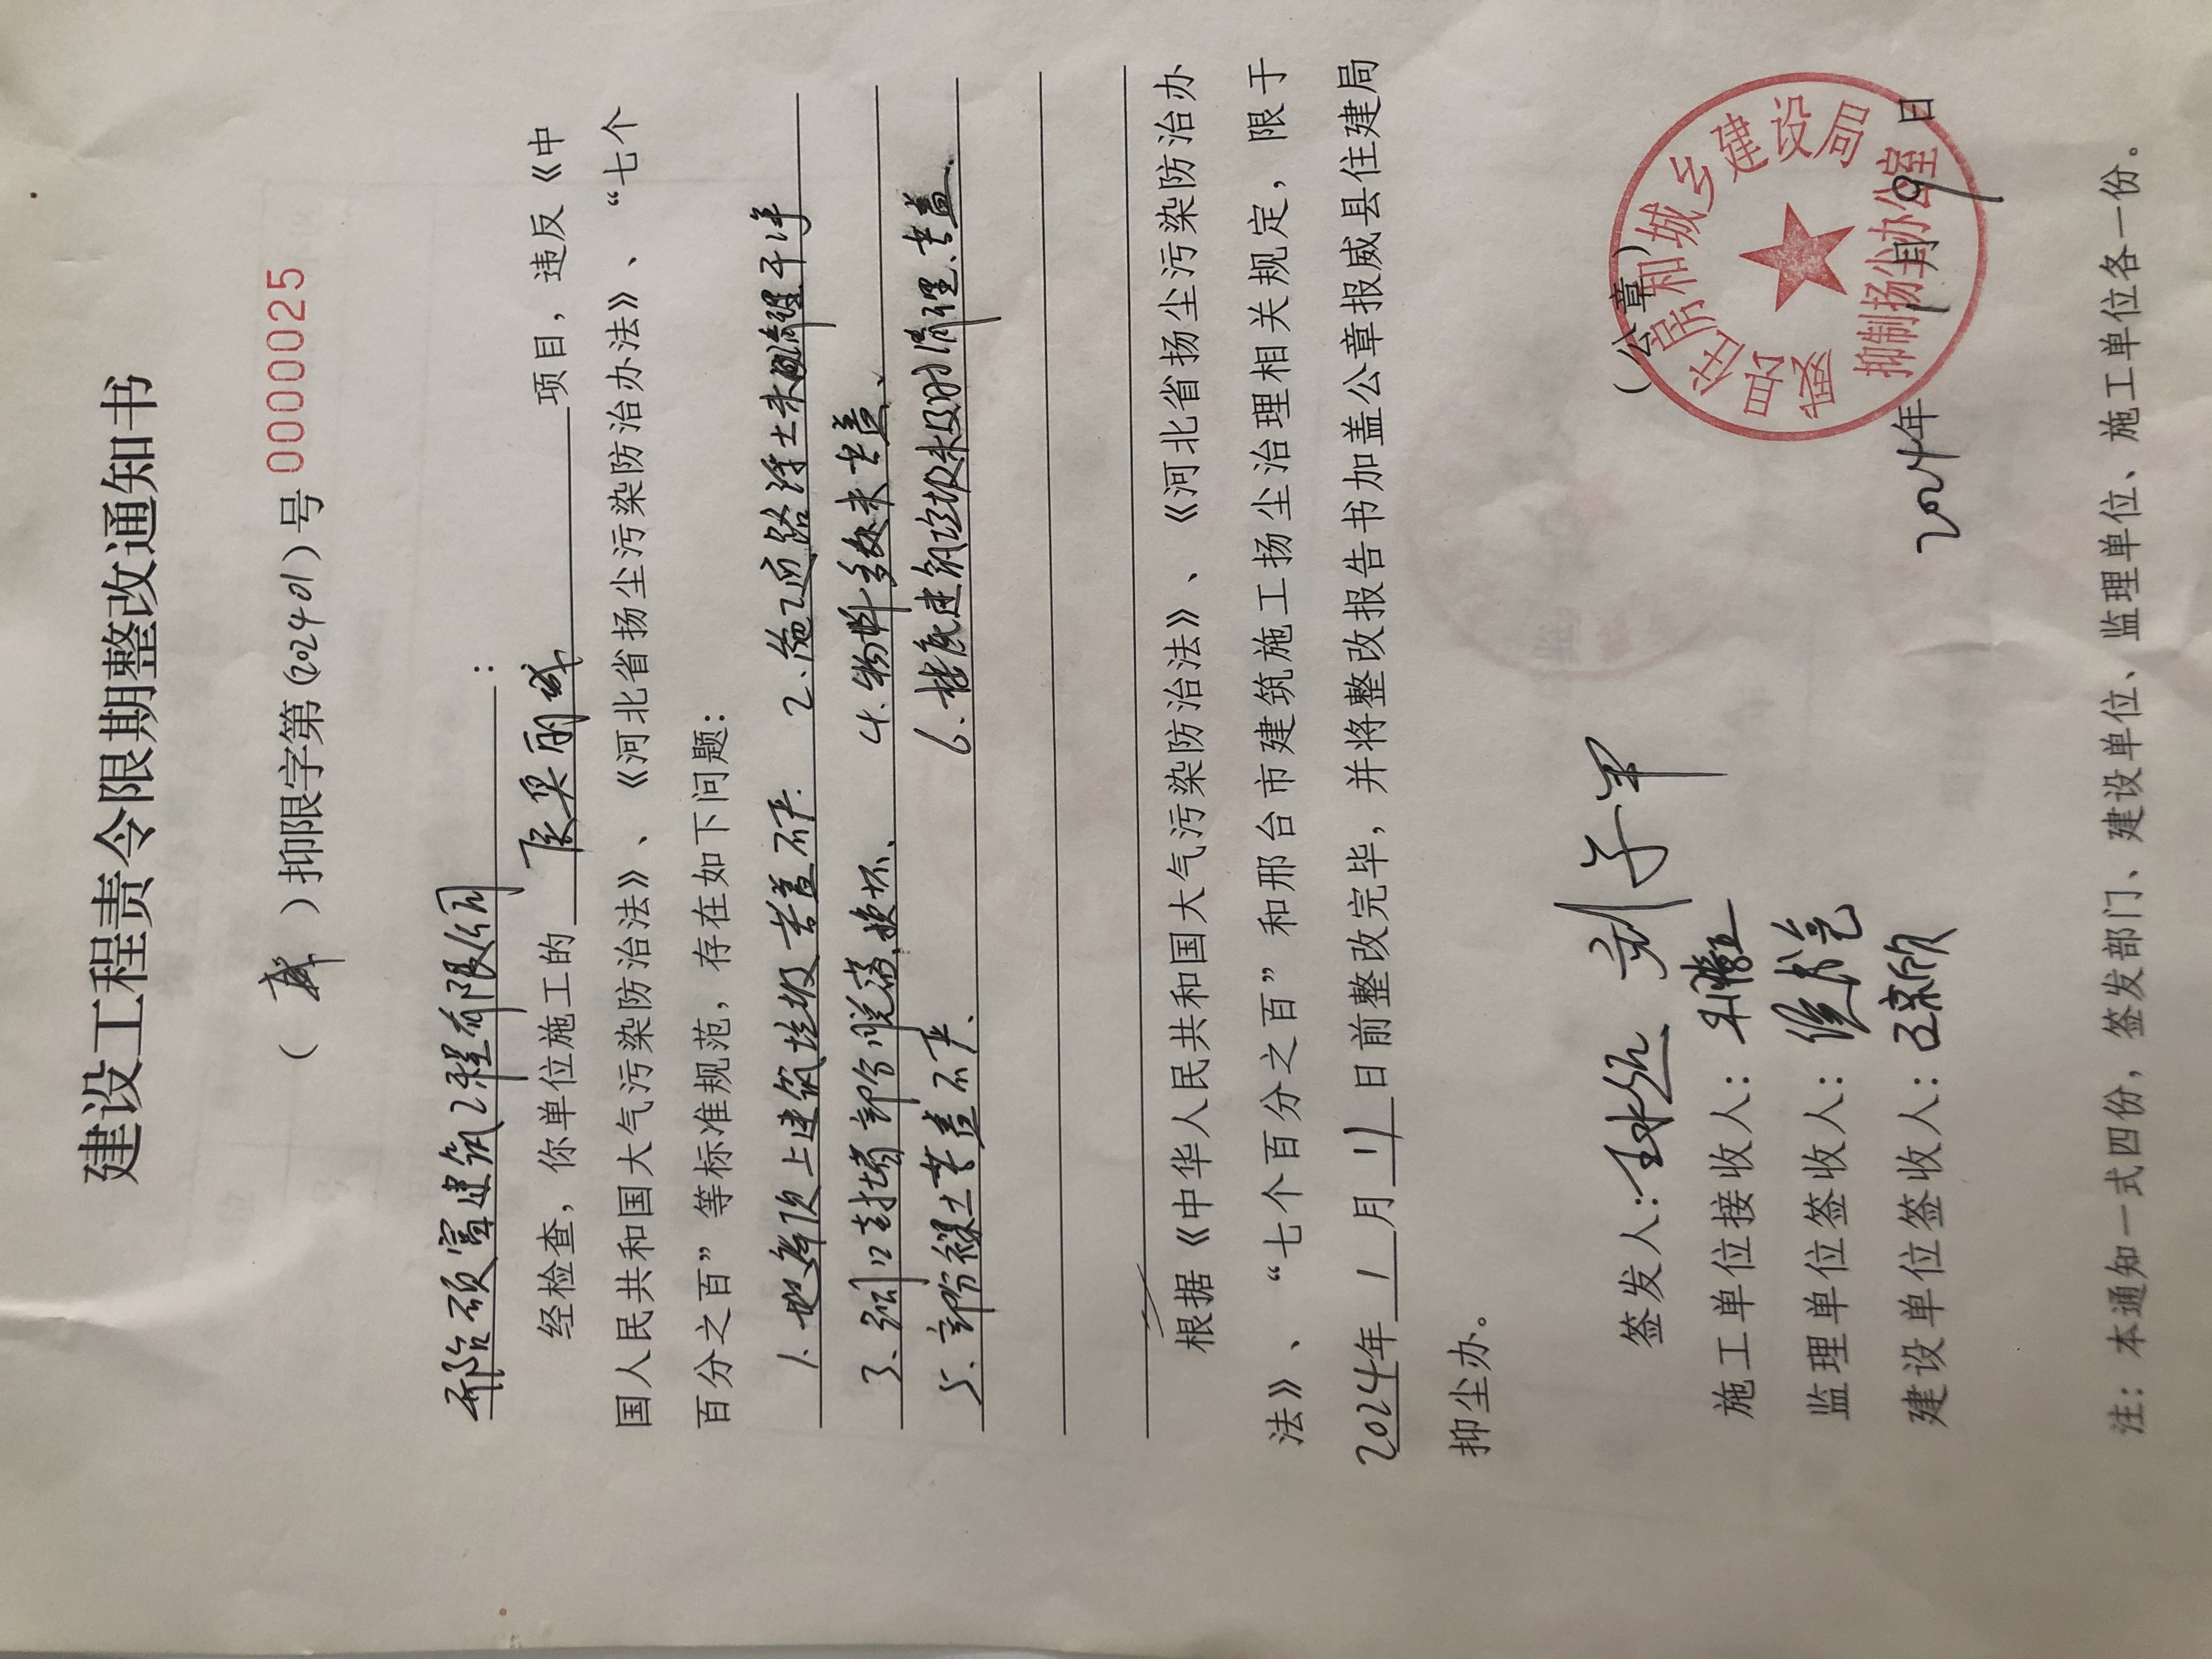 建设工程责令限期整改通知书
（ 威 ）抑限字第(202401)号 0000025
邢台硕富建筑工程有限公司：
经检查，你单位施工的 项目，违反《中
国人民共和国大气污染防治法》、《河北省扬尘污染防治办法》、“七个
百分之百”等标准规范，存在如下问题：
1. 地库顶上建筑垃圾苫盖不严. 2. 施工道路浮土未清理干净
3. 洞口封堵部份脱落、损坏、 4. 物料多处未苫盖、
5. 部份裸土苫盖不严、 6. 楼底建筑垃圾未及时清理、苫盖、
根据《中华人民共和国大气污染防治法》、《河北省扬尘污染防治办
法》、“七个百分之百”和邢台市建筑施工扬尘治理相关规定，限于
2024年 1 月 11 日前整改完毕，并将整改报告书加盖公章报威县住建局
抑尘办。
（公章）
签发人：
施工单位接收人：
监理单位签收人：
建设单位签收人：
威县住房和城乡建设局
抑制扬尘办公室
2024年 1月 9日
注：本通知一式四份，签发部门、建设单位、监理单位、施工单位各一份。